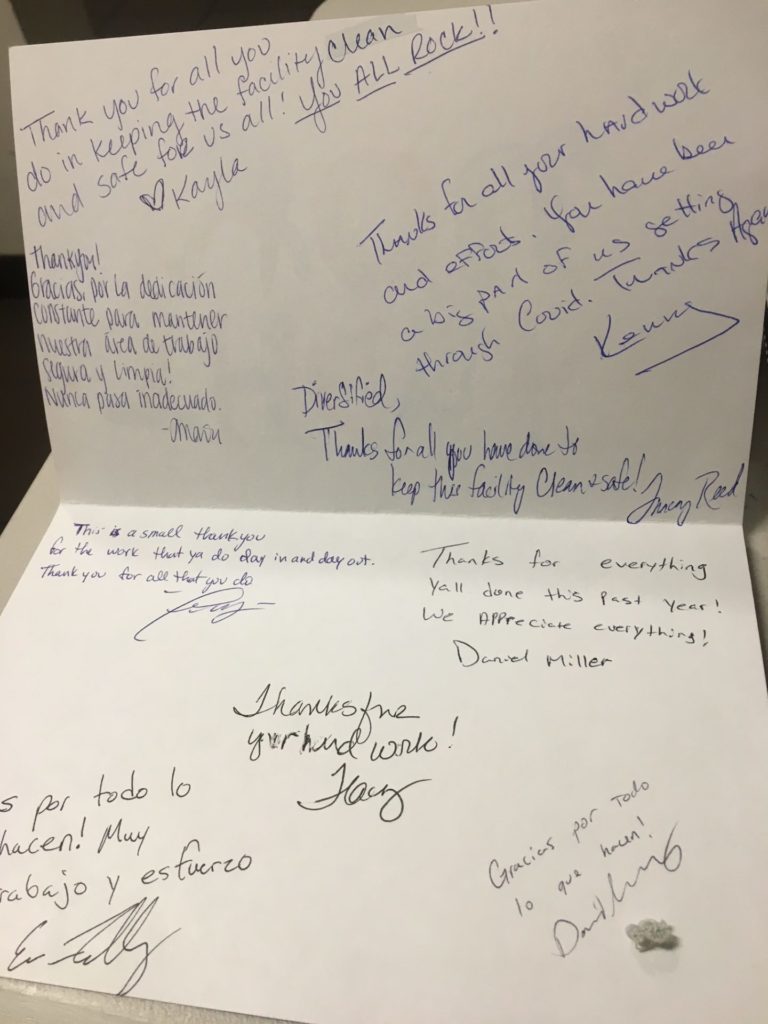 Thank you for all you
do in keeping the facility clean
and safe for us all! You ALL ROCK!!
♡ Kayla
Thanks for all your hard work
and effort. You have been
a big part of us getting
through Covid. Thanks Again
Kenny
Thank you!
Gracias, por la dedicación
constante para mantener
nuestra área de trabajo
segura y limpia!
Nunca pasa inadecuado.
Diversified,
Thanks for all you have done to
keep this facility Clean + safe!
Reed
This is a small thank you
for the work that ya do day in and day out.
Thank you for all that you do
Thanks for everything
Yall done this past year!
We Appreciate everything!
Daniel Miller
Thanks for
your hard work!
s por todo lo
hacen! Muy
rabajo y esfuerzo
Gracias por todo
lo que hacen!
David